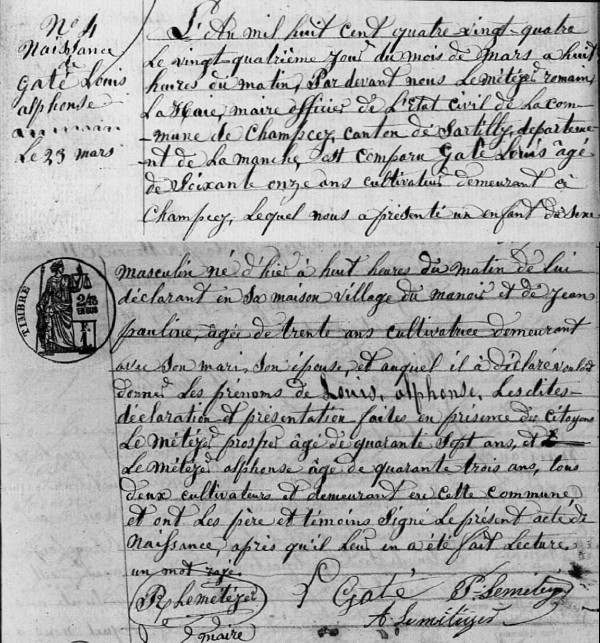 N° 4
Naissance
de
Gaté Louis
alphonse
Le 23 mars
L'An mil huit cent quatre vingt-quatre
Le vingt-quatrième jour du mois de Mars a huit
heures du matin, Par devant nous Lemétézer romain,
La Haie, maire officier de L'Etat civil de La com-
mune de Champcey, canton de Sartilly, departeme-
nt de La manche, est comparu Gaté Louis âgé
de Soixante onze ans cultivateur demeurant à
Champcey, Lequel nous a présenté un enfant du sexe
TIMBRE
masculin né d'hier à huit heures du matin de lui
déclarant en Sa maison village du manoir et de Jean
pauline, âgée de trente ans cultivatrice demeurant
avec Son mari, Son épouse, et auquel il à déclaré vouloir
donner Les prénoms de Louis, alphonse, Les dites-
déclaration et présentation faites en présence des Citoyens
Le Métézer prosper âgé de quarante Sept ans, et
Le Métézer alphonse âgé de quarante trois ans, tous
deux cultivateurs et demeurant en cette commune
et ont Les père et témoins Signé Le présent acte de
Naissance, après qu'il Leur en a été fait Lecture.
un mot rayé.
R Lemétézer L Gaté P. Lemétézer
A Lemétézer
maire